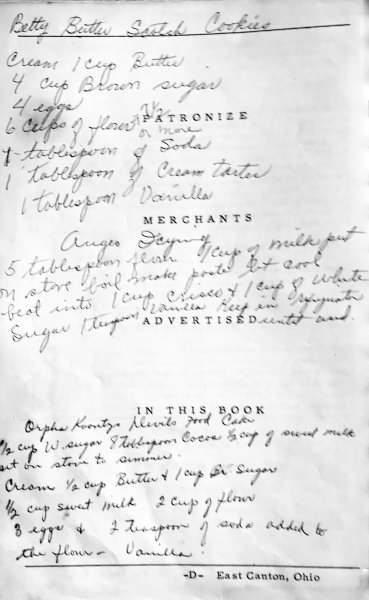 Betty Butter Scotch Cookies
Cream 1 cup Butter
4 cup Brown sugar
4 eggs
6 cups of flour 7 1/2
or more
PATRONIZE
1 tablespoon of Soda
1 tablespoon of Cream tarter
1 tablespoon Vanilla
MERCHANTS
5 tablespoon flour 1 cup of milk put
on stove boil make paste let cool
beat into 1 cup crisco & 1 cup of White
Sugar 1 teaspoon Vanilla Keep in
until used.
ADVERTISED
IN THIS BOOK
Orpha Koontz Devils Food Cake
1/2 cup W. sugar 8 tablespoon Cocoa 1/2 cup of sweet milk
set on stove to simmer.
Cream 1/2 cup Butter & 1 cup Br. Sugar
1/2 cup sweet milk 2 cup of flour
3 eggs & 2 teaspoon of soda added to
the flour - Vanilla.
-D- East Canton, Ohio